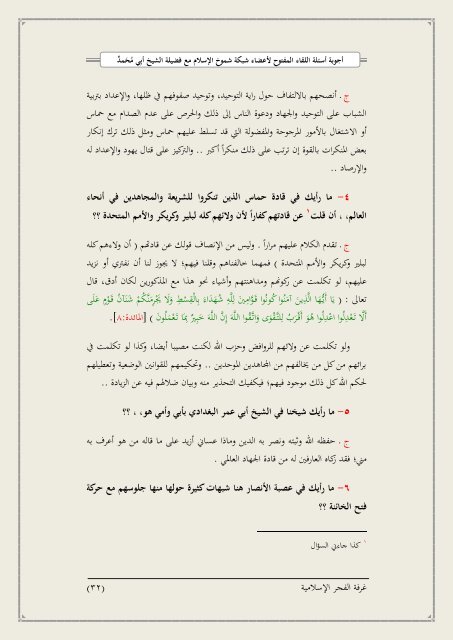 أجوبة أسئلة اللقاء المفتوح لأعضاء شبكة شموخ الإسلام مع فضيلة الشيخ أبي مُحَمدٌ
ج . أنصحهم بالالتفاف حول راية التوحيد، وتوحيد صفوفهم في ظلها، والإعداد بتربية
الشباب على التوحيد والجهاد ودعوة الناس إلى ذلك والحرص على عدم الصدام مع حماس
أو الاشتغال بالأمور المرجوحة والمفضولة التي قد تسلط عليهم حماس ومثل ذلك ترك إنكار
بعض المنكرات بالقوة إن ترتب على ذلك منكراً أكبر .. والتركيز على قتال يهود والإعداد له
والإرصاد ..
٤- ما رأيك في قادة حماس الذين تنكروا للشريعة والمجاهدين في أنحاء
العالم، ، أن قلت١ عن قادتهم كفاراً لأن ولائهم كله لبلير وكريكر والأمم المتحدة ؟؟
ج . تقدم الكلام عليهم مراراً . وليس من الإنصاف قولك عن قادتهم ( أن ولاءهم كله
لبلير وكريكر والأمم المتحدة ) فمهما خالفناهم وقلنا فيهم؛ لا يجوز لنا أن نفتري أو نزيد
عليهم، لو تكلمت عن ركونهم ومداهنتهم وأشياء نحو هذا مع المذكورين لكان أدق، قال
تعالى : ( يَا أَيُّهَا الَّذِينَ آمَنُوا كُونُوا قَوَّامِينَ لِلَّهِ شُهَدَاءَ بِالْقِسْطِ وَلَا يَجْرِمَنَّكُمْ شَنَآنُ قَوْمٍ عَلَى
أَلَّا تَعْدِلُوا اعْدِلُوا هُوَ أَقْرَبُ لِلتَّقْوَى وَاتَّقُوا اللَّهَ إِنَّ اللَّهَ خَبِيرٌ بِمَا تَعْمَلُونَ ) [المائدة:٨].
ولو تكلمت عن ولائهم للروافض وحزب الله لكنت مصيبا أيضا، وكذا لو تكلمت في
برائهم من كل من يخالفهم من المجاهدين الموحدين .. وتحكيمهم للقوانين الوضعية وتعطيلهم
لحكم الله كل ذلك موجود فيهم؛ فيكفيك التحذير منه وبيان ضلالهم فيه عن الزيادة ..
٥- ما رأيك شيخنا في الشيخ أبي عمر البغدادي بأبي وأمي هو، ، ؟؟
ج . حفظه الله وثبته ونصر به الدين وماذا عساني أزيد على ما قاله من هو أعرف به
مني؛ فقد زكاه العارفين له من قادة الجهاد العالمي .
٦- ما رأيك في عصبة الأنصار هنا شبهات كثيرة حولها منها جلوسهم مع حركة
فتح الخائنة ؟؟
١ كذا جاءني السؤال
غرفة الفجر الإسلامية
(٣٢)